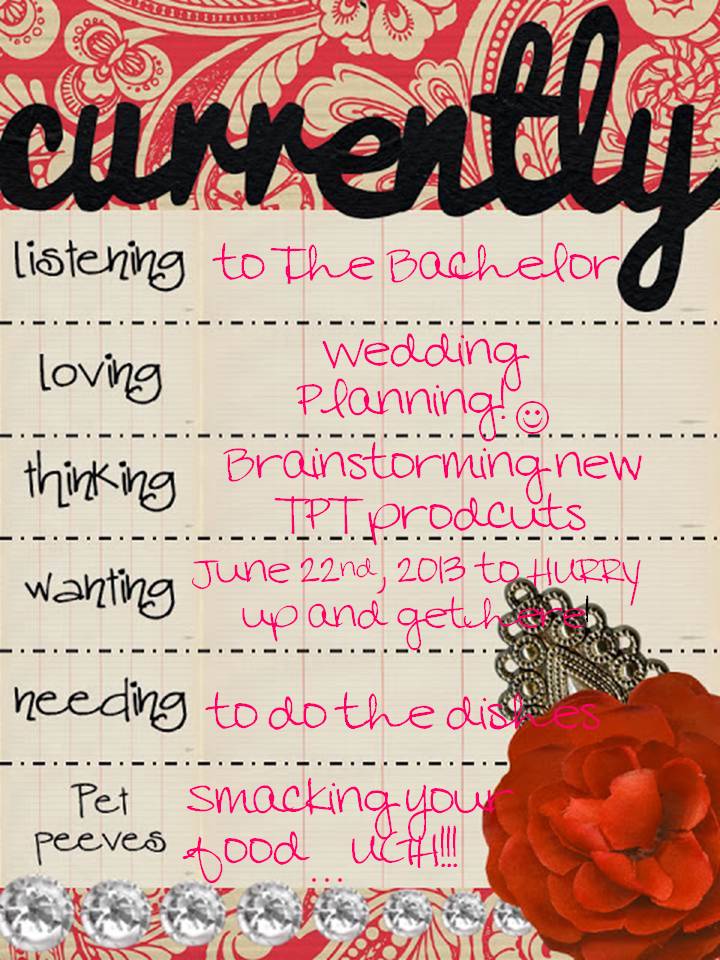 currently
listening to The Bachelor
loving
Wedding
Planning! ☺
thinking
Brainstorming new
TPT prodcuts
wanting
June 22nd, 2013 to HURRY
up and get here!
needing to do the dishes
Pet
peeves
smacking your
food ... UGH!!!